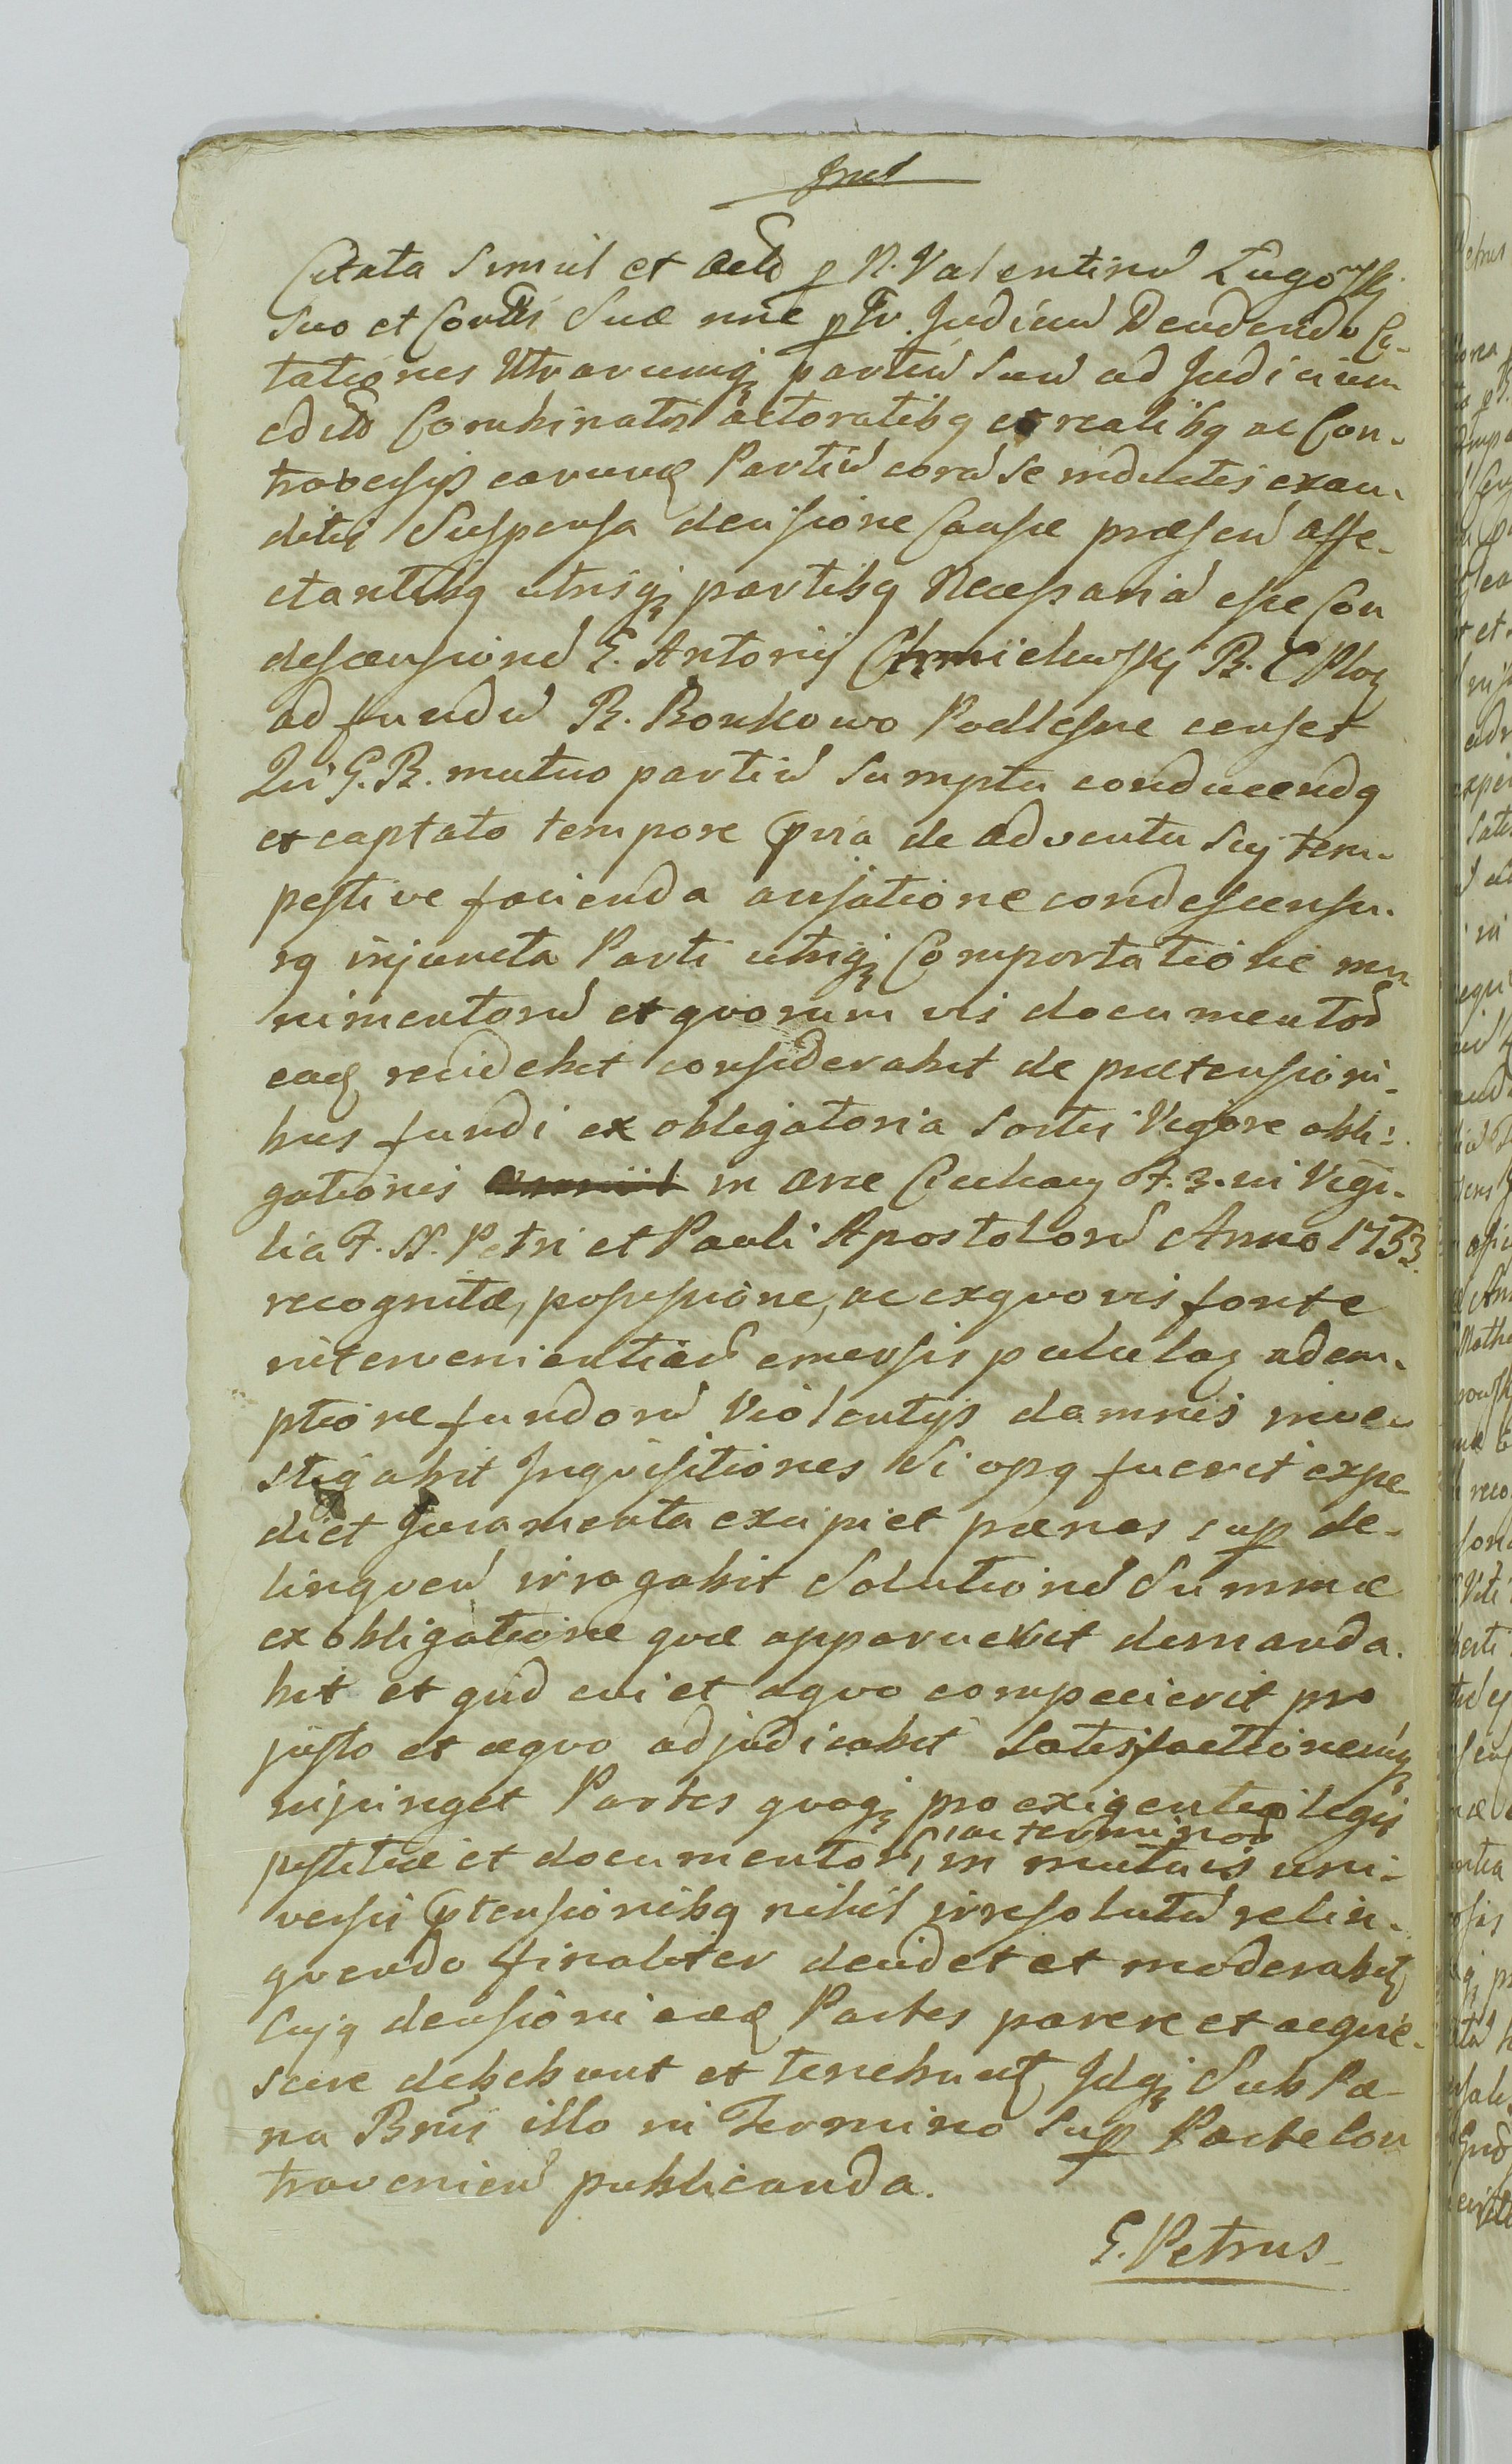 Simul
Citata Simul et Actô p N. Valentinū Lugowskj
Suo et Cortis Suæ nne p Pr. Judiciū Deudendo Ci-
tationes Utrarumq partiū Suū ad Judicium
edito Combinatis actoratibq et realibq ac Con-
troversijs earumq Partiū corā se inductis exau-
ditis Suspensa decisione Causæ præsen affe-
ctantibq utrisq partibq Necessariā esse Con
descensionē G. Antonij Chmielewskj B. C Ploc
ad fundū B. Bonkowo Podlesne censet
Qui G. B. mutuo partiū Sumptu conducendq
et captato tempore pvia de adventu Suj tem-
pestive facienda avisatione condescensu-
rq injuncta Parti utriq Comportatione mu
nimentorū et quorum vis documentor
eaq revidebit considerabit de prætensioni-
bus fundi ex obligatoria Sortis Vigore obli-
gationis in Arce Ciechan F. 3. in Vigi-
lia F. SS. Petri et Pauli Apostolorū Anno 1753.
recognitæ, possessione, ac exquovis fonte
intervenientiarū emersis pululaq adem-
ptione fundorū Violentijs damnis inve
stigabit Inquisitiones Si opq fuerit expe
diet Juramenta excipiet pænas sup de-
linquen irrogabit Solutionē Summæ
ex obligatione quæ apparuerit demanda-
bit et quid cui et aquo competierit pro
justo et æquo adjudicabit Satisfactionemq
injunget Partes quoq pro exigentia legis
justitiæ et documentor, ac terminor in mutuis uni-
versis ptensionibq nihil irresolutū relin-
quendo finaliter decidet et moderabit
Cujq decisioni eæq Partes parere et acquie-
scere debebunt et tenebunt, Idq Sub Pæ-
na Bnis illo in Termino Sup Parte Con
travenien publicanda.
G. Petrus